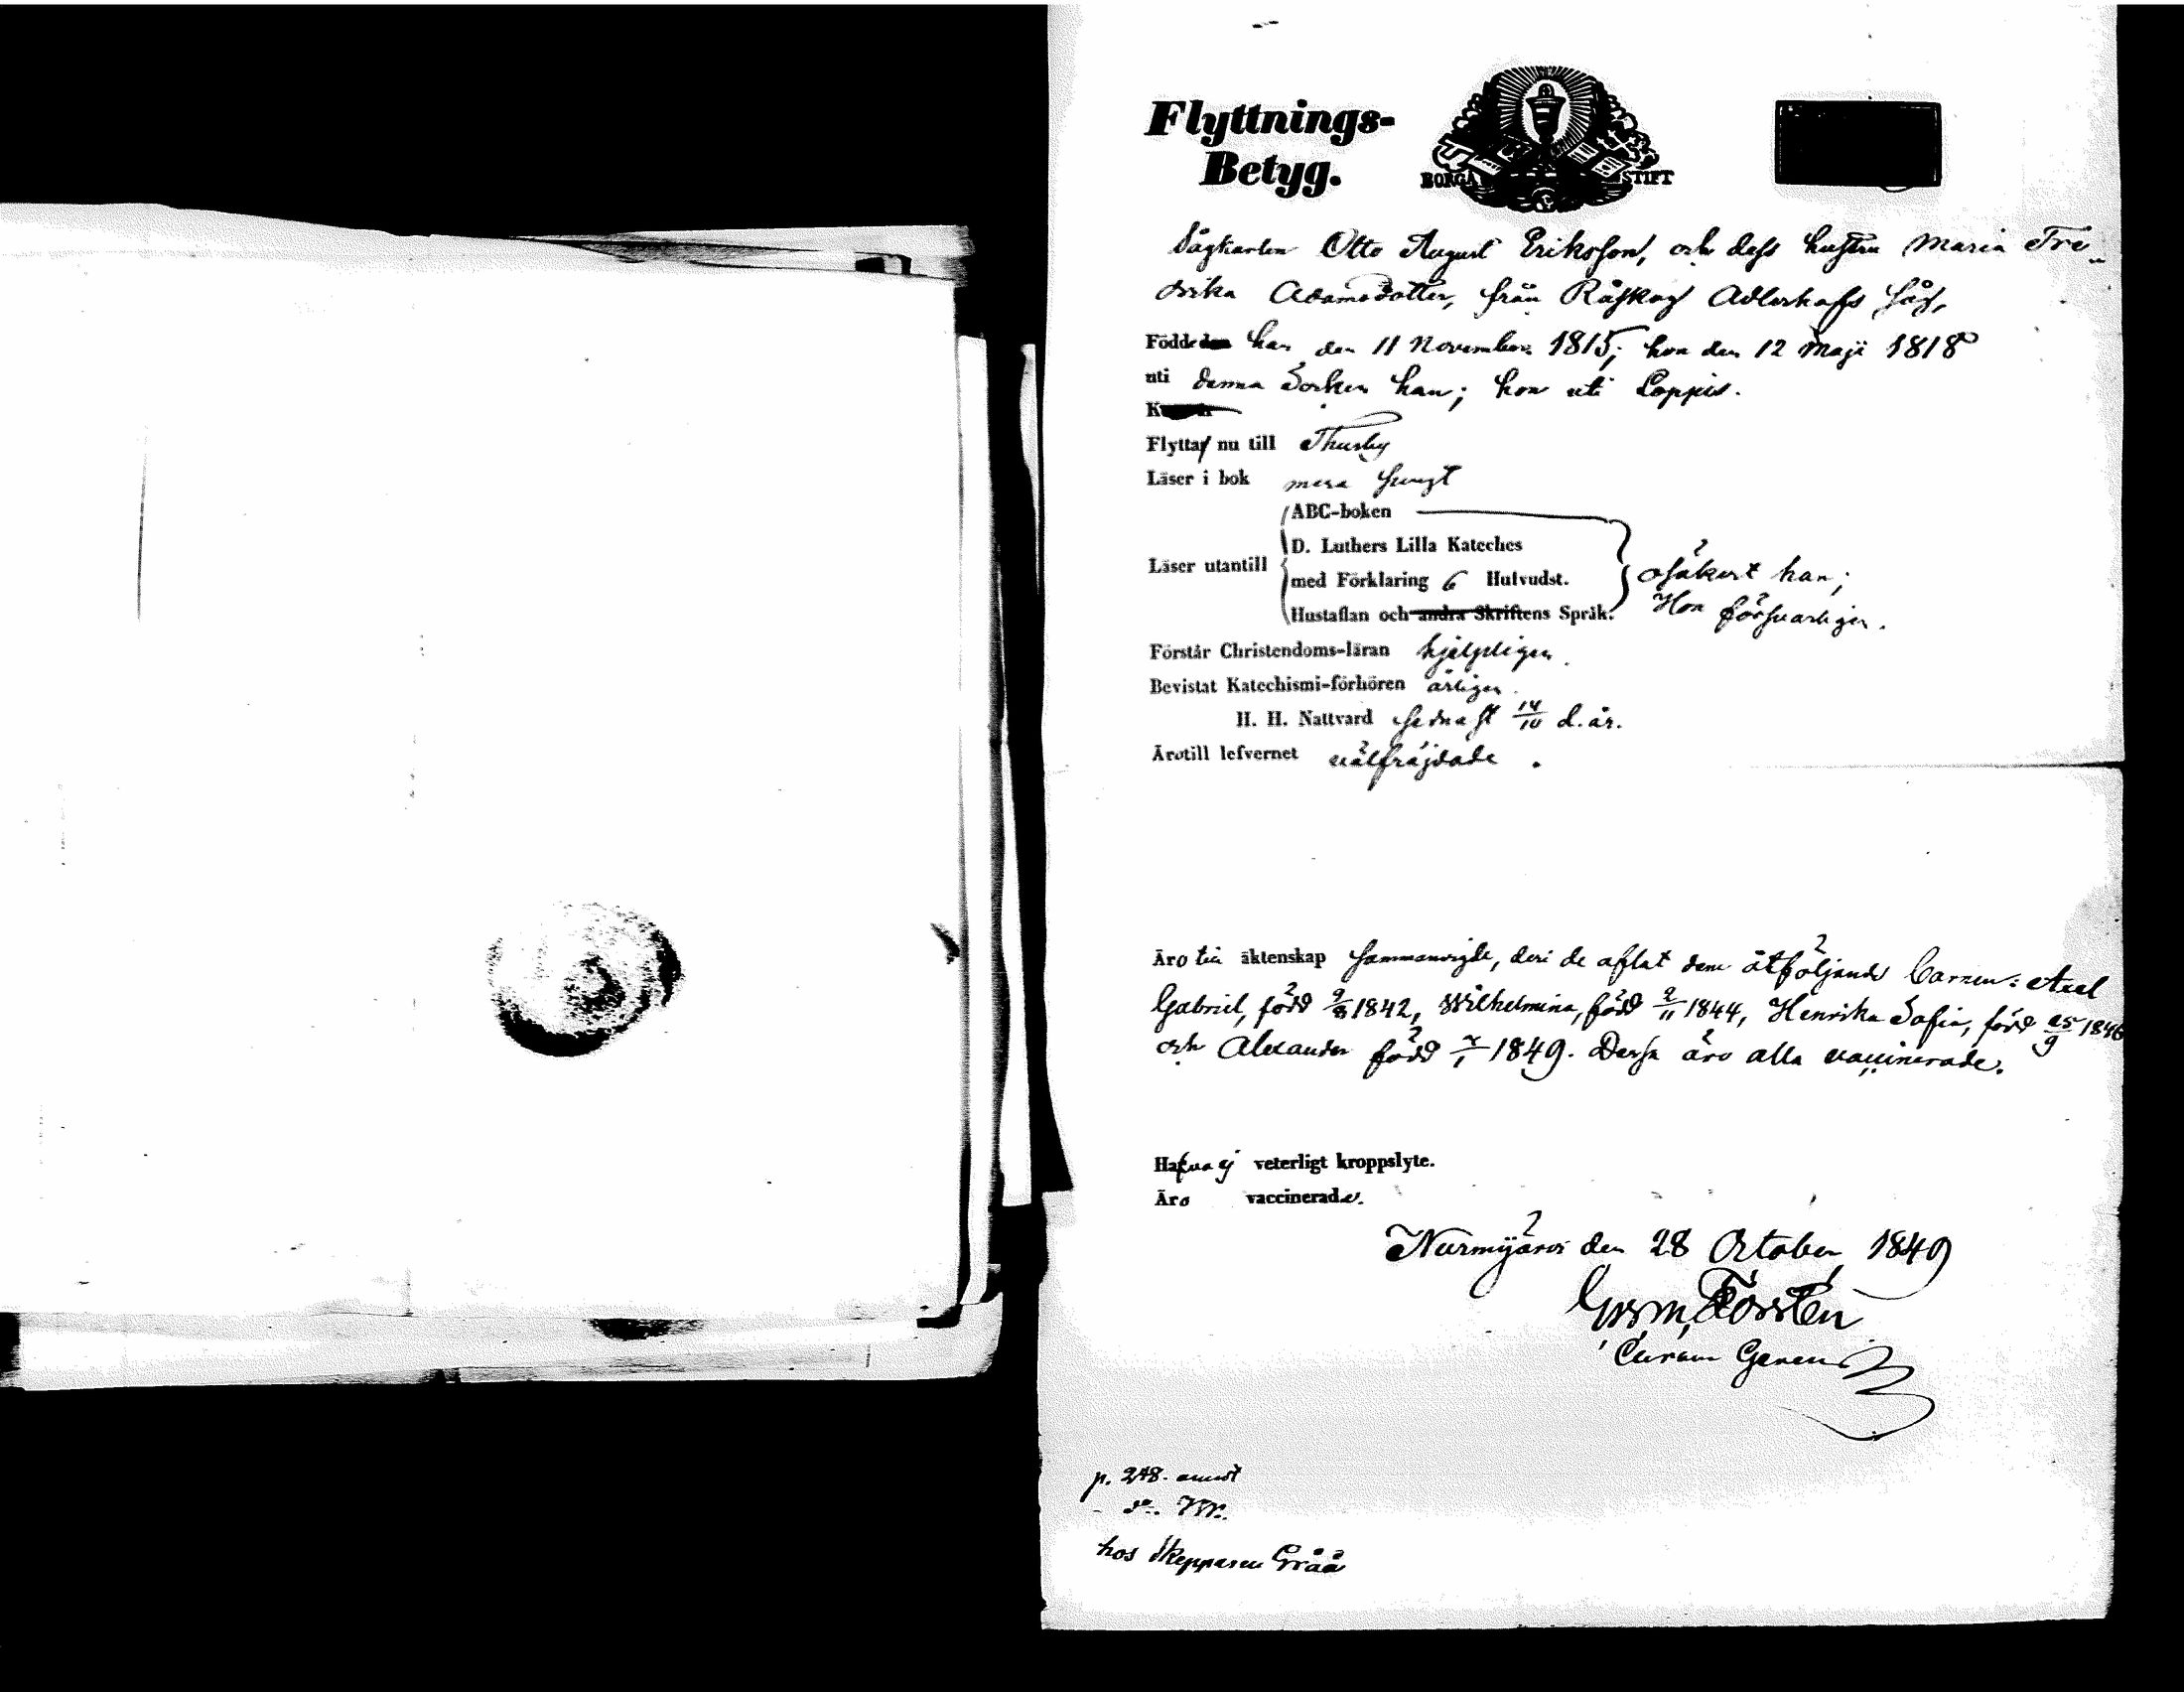 Flyttnings-
Betyg.
BORGÅ STIFT
Sågkarlen Otto August Eriksson, och dess hustru Maria Fre-
drika Adamsdotter, från Råskog Adlerkafs såg,
Födde han den 11 November 1815; hon den 12 Maji 1818
uti denna Socken han; hon uti Loppis.
Flytta nu till Thusby
Läser i bok mera svagt
ABC-boken
D. Luthers Lilla Kateches
Läser utantill
med Förklaring 6 Hufvudst.
Hustaflan och andra Skriftens Språk.
osäkert han;
Hon försvarligen.
Förstår Christendoms-läran hjelpligen.
Bevistat Katechismi-förhören årligen.
H. H. Nattvard sednast 14/10 d. år.
Äro till lefvernet välfräjdade.
Äro till äktenskap sammanvigde, deri de aflat dem åtföljande barnen: Axel
Gabriel, född 9/8 1842, Wilhelmina, född 2/11 1844, Henrika Sofia, född 25/9 1846
och Alexander född /1 1849. Dessa äro alla vaccinerade.
Hafva ej veterligt kroppslyte.
Äro vaccinerade.
Nurmijärvi den 28 October 1849
Forstén
Curam Gerens
p. 248.
hos Skepparen Gråå